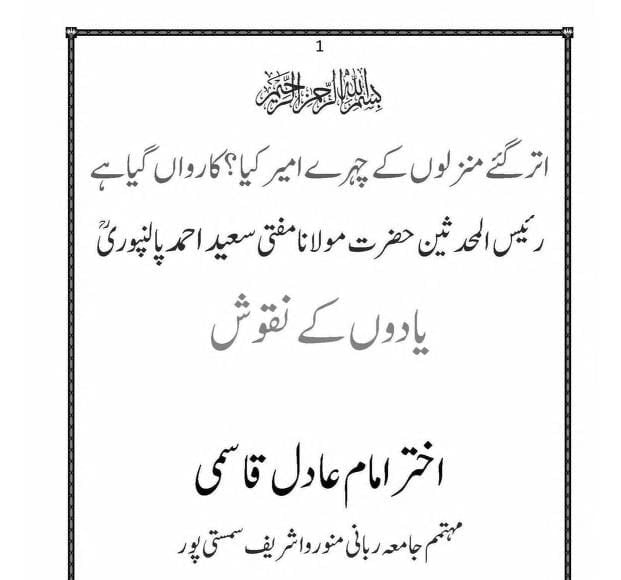 1
بسم اللہ الرحمن الرحیم
اتر گئے منزلوں کے چہرے امیر کیا؟ کارواں گیا ہے
رئیس المحدثین حضرت مولانا مفتی سعید احمد پالنپوریؒ
یادوں کے نقوش
اختر امام عادل قاسمی
مہتمم جامعہ ربانی منوروا شریف سمستی پور